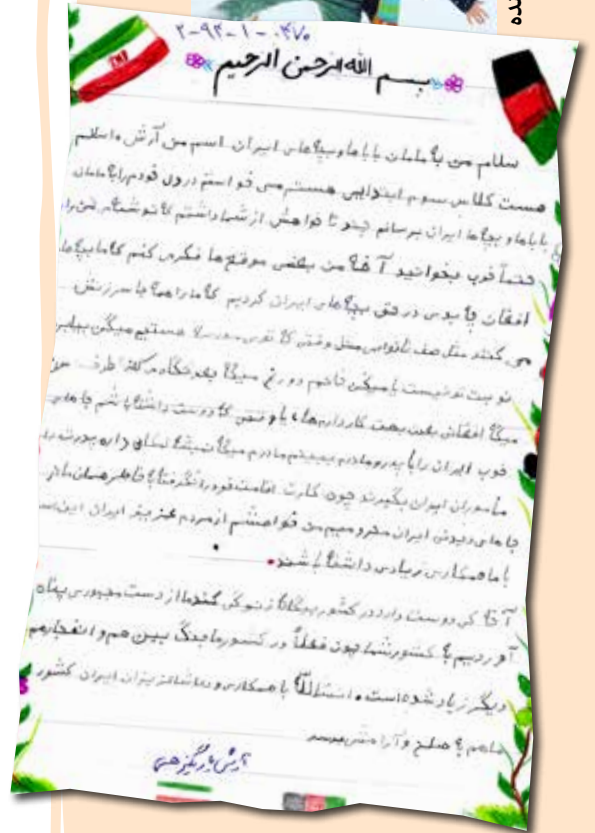 ۳-۹۴-۱-۰۴۷۰
بسم الله الرحمن الرحیم
سلام من به مامان باباها و بچه های ایران. اسم من آرش است
هست کلاس سوم ابتدایی هستم می خواستم درد دل خودم را به مامان
باباها و بچه ها ایران برسانم چند تا خواهش از شما داشتم که نوشته ام
حتماً خوب بخوانید آخه من بعضی موقع ها فکر می کنم که ما بچه های
افغان چه بدی در حق بچه های ایران کردیم که ما را همه جا سرزنش
می کنند مثل صف نانوایی مثل وقتی که توی مدرسه هستیم میگن
نوبت تو نیست یا میگن خانم دروغ میگه بعد نگاه می کنه طرف من
میگه افغانی بعدن بهت کار دارم ها، یا وقتی که دوست داشته باشم جاهای
خوب ایران را با پدر و مادرم ببینم مادرم میگه نمیشه امکان داره پدرت
مأموران ایران بگیرند چون کارت اقامت خود را نگرفته به خاطر همان ما از
جاهای دیدنی ایران محرومیم من خواهشم از مردم عزیز ایران این
با ما همکاری زیادی داشته باشند.
آخه کی دوست دارد در کشور بیگانه زندگی کند ما از دست مجبوری پناه
آوردیم به کشور شما چون فعلاً در کشور ما جنگ بین هم و انفجار هم
دیگر زیاد شده است. انشاالله با همکاری و دعا شما عزیزان ایران کشور
ماهم به صلح و آرامش برسد